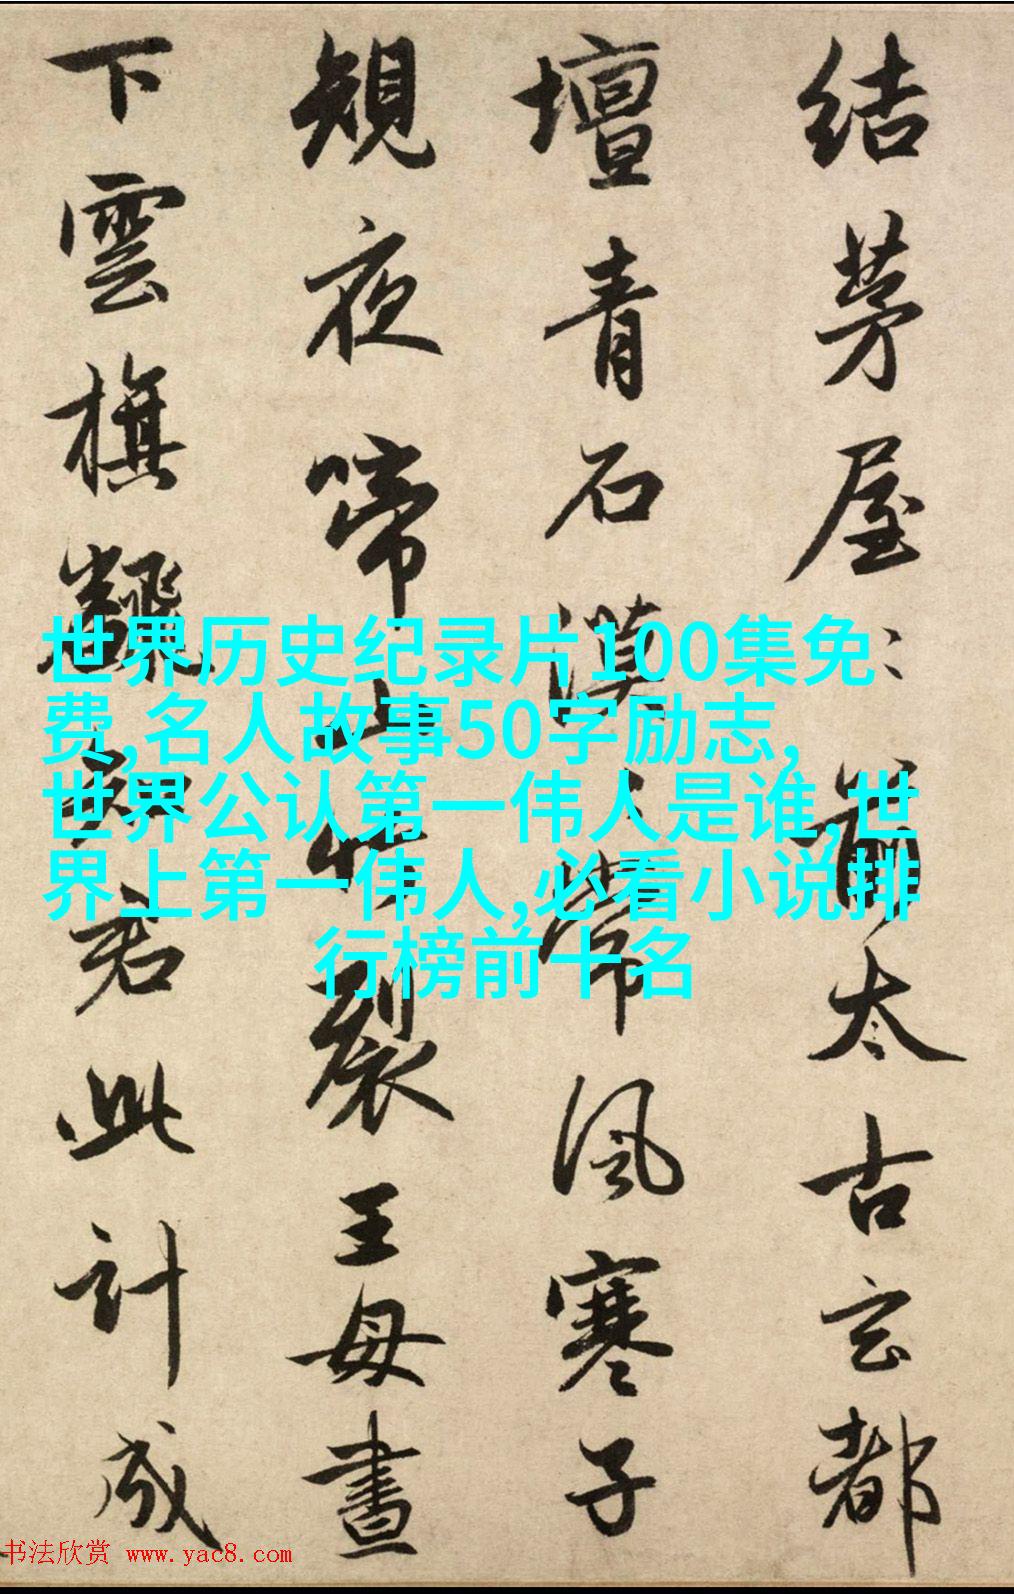 結茅屋〻前太古玄都
壇青石漠〻常風寒子
規夜啼山竹裂王母晝
下雲旗飜知君此計成
世界历史纪录片100集免
费,名人故事50字励志,
世界公认第一伟人是谁,世
界上第一伟人,必看小说排
行榜前十名
书法欣赏 www.yac8.com